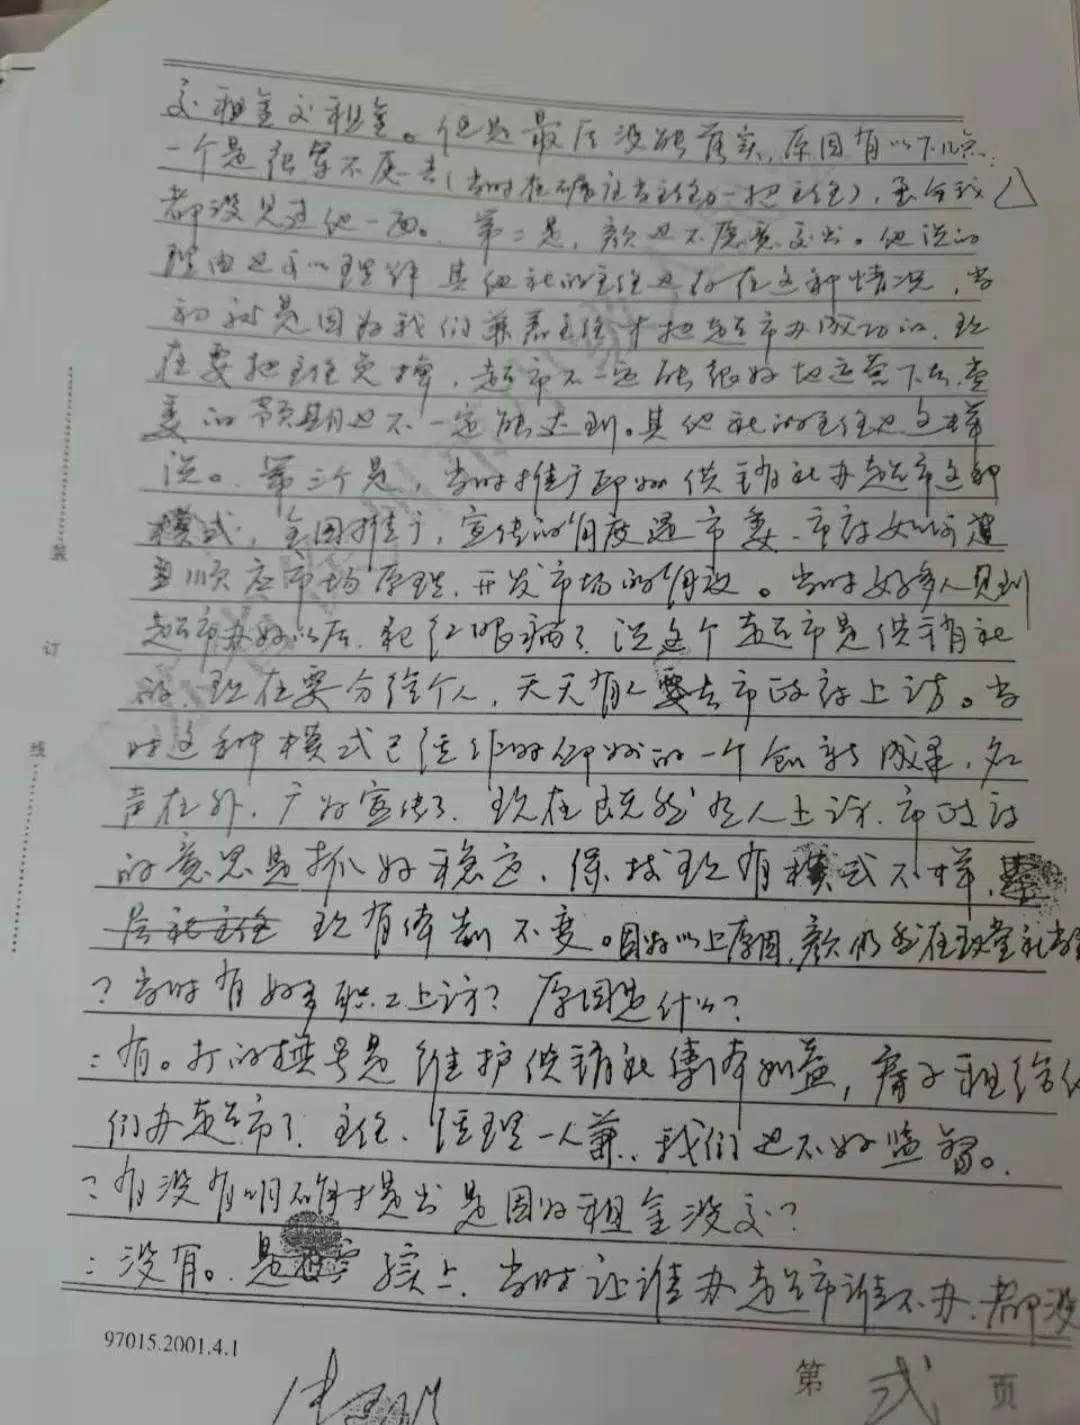 交租金交租金。但是最后没能落实,原因有以下几点:
一个是张军不愿去(当时在主任当主任一把主任),至今我
都没见过他一面。第二是,颜也不愿意交出。他说的
理由也可以理解 其他社的主任也存在这种情况,当
初就是因为我们兼着主任才把超市办成功的,现
在要把主任交掉,超市不一定能很好地运营下去,
的预期也不一定能达到。其他社的主任也这样
说。第三个是,当时推广邳州供销社办超市这种
模式,全国推广,宣传的角度是市委、市府如何
顺应市场原理,开发市场的角度。当时好多人见到
超市办好以后,犯红眼病了,说这个超市是供销社
的,现在要分给个人,天天有人要去市政府上访。当
时这种模式已经作为邳州的一个创新成果,名
声在外,广为宣传了,现在既然有人上访,市政府
的意思是抓好稳定,保持现有模式不样,
现有体制不变。因为以上原因,颜仍然在
?当时有好多职工上访?原因是什么?
:有。打的旗号是维护供销社集体利益,房子租给他
们办超市了,主任、经理一人兼,我们也不好监督。
?有没有明确提出是因为租金没交?
:没有。是 实上,当时让谁办超市谁不办,都没
装
订
线
97015.2001.4.1
第 弍 页